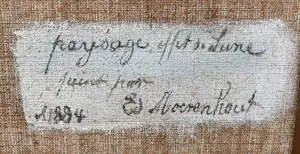 paysage, effet de Lune
peint par
Ed Moerenhout
1884